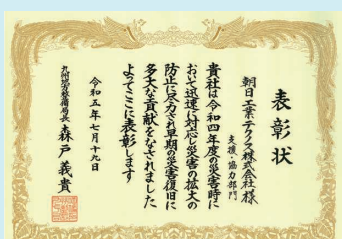 表彰状
朝日工業テクノス株式会社 様
支援・協力部門
貴社は令和四年度の災害時に
おいて迅速に対応し災害の拡大の
防止に尽力され早期の災害復旧に
多大な貢献をなされました
よってここに表彰します
令和五年七月十九日
九州地方整備局長 森戸義貴